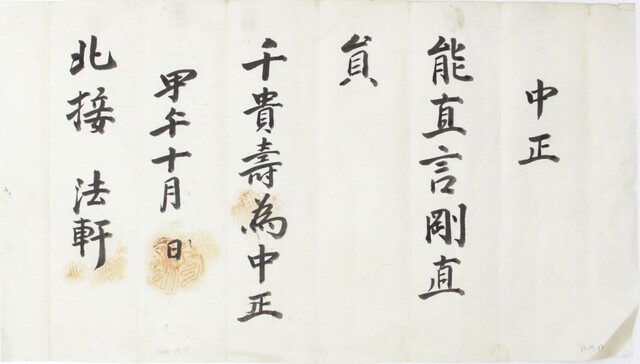 中正
能直言剛直
負
千貴壽為中正
甲午十月 日
北接 法軒